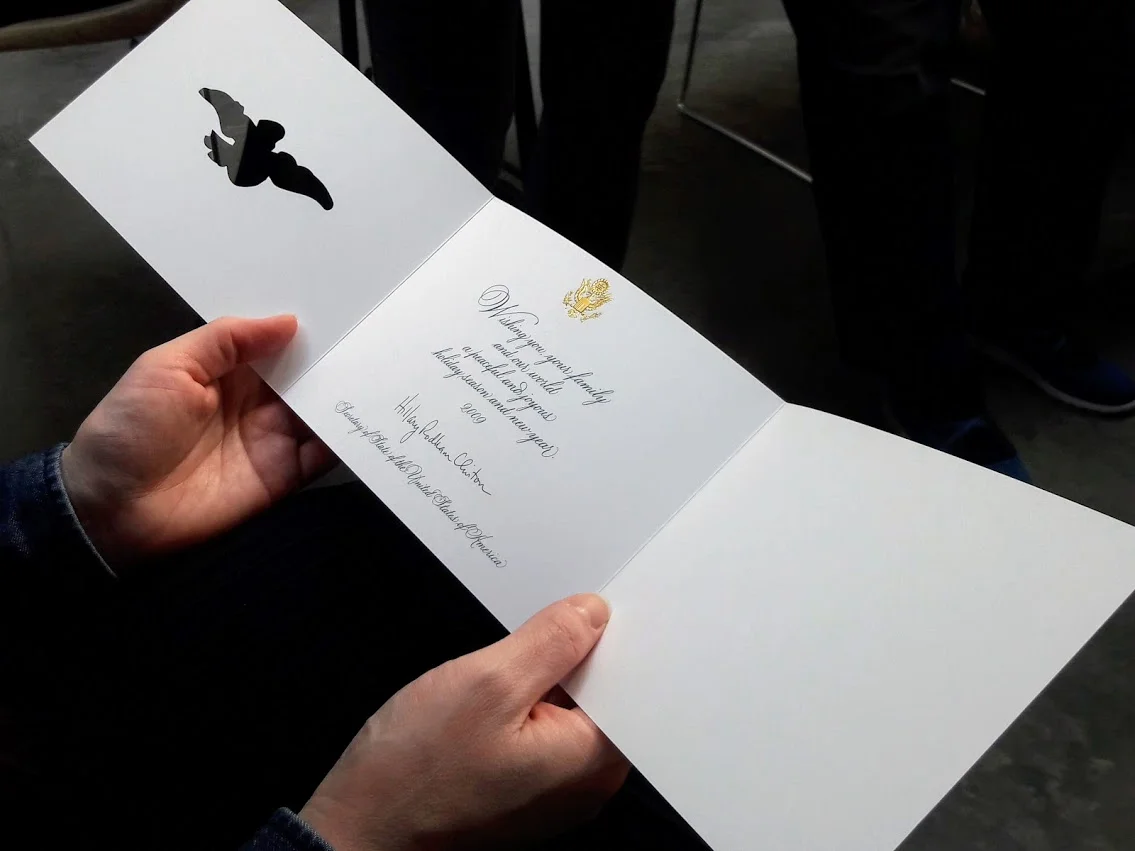 Wishing you, your family
and our world
a peaceful and joyous
holiday season and new year.
2009
Hillary Rodham Clinton
Secretary of State of the United States of America